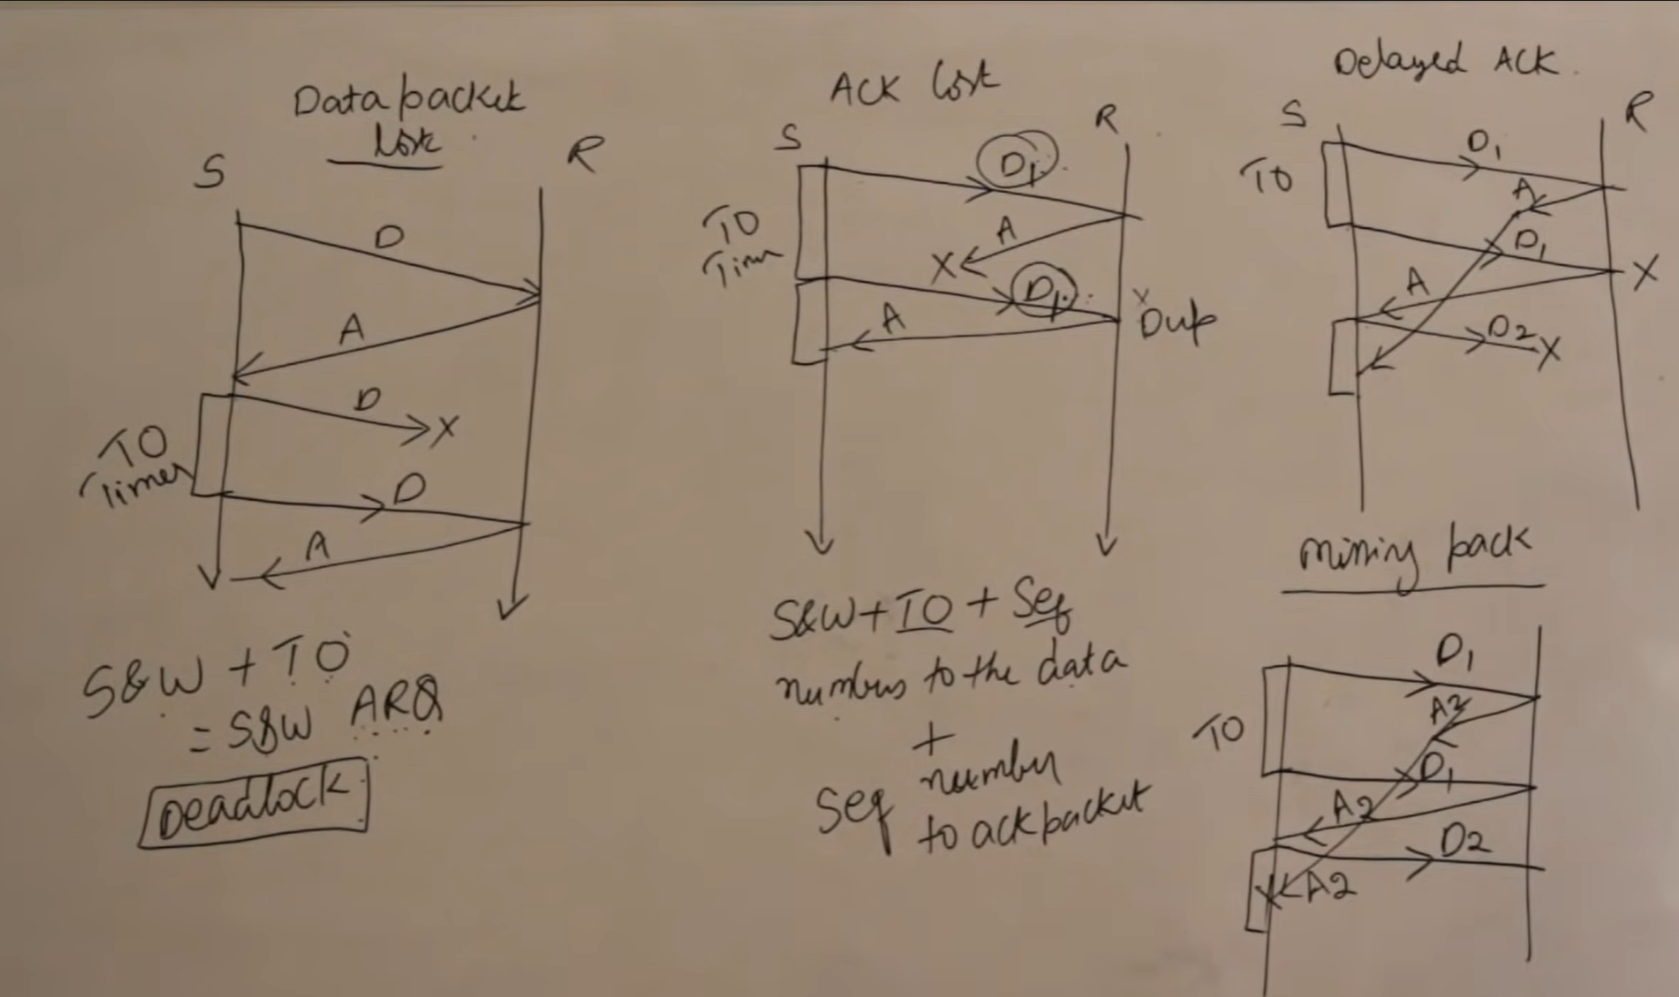 Data packet
lost
S
R
D
A
D
X
TO
Timer
D
A
S&W + TO
= S&W ARQ
Deadlock
ACK lost
S
R
D1
TO
Timer
A
X
D1
A
X
Dup
S&W + TO + Seq
numbers to the data
+
Seq number
to ack packet
Delayed ACK
S
R
TO
D1
A
D1
X
A
D2
X
missing pack
D1
A2
TO
D1
A2
D2
A2